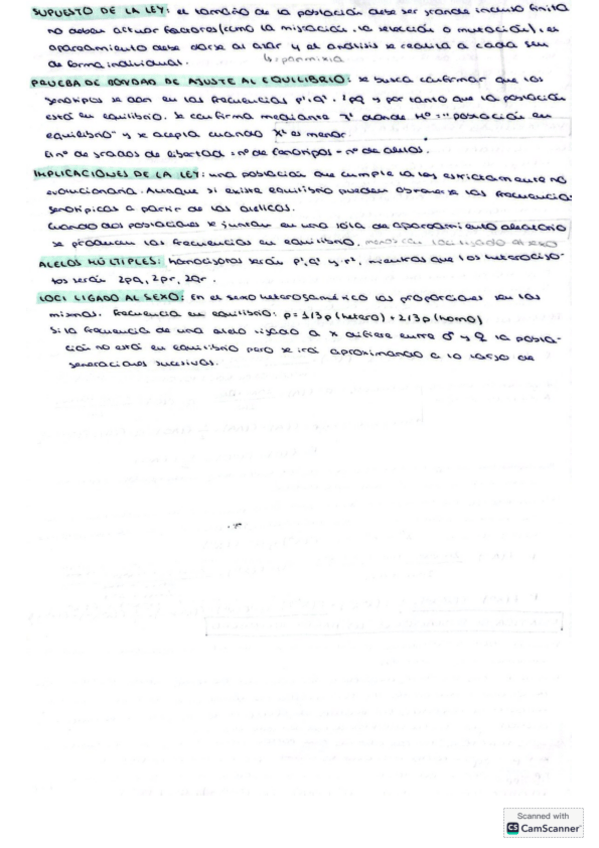 SUPUESTO DE LA LEY: el tamaño de la población debe ser grande incluso finita
no deben actuar factores (como la migración, la selección o mutación), el
apareamiento debe darse al azar y el análisis se realiza a cada gen
de forma individual. ↳ panmixia
PRUEBA DE BONDAD DE AJUSTE AL EQUILIBRIO: se busca confirmar que los
genotipos se dan en las frecuencias p², q², 2pq y por tanto que la población
está en equilibrio. Se confirma mediante χ² donde H⁰ = "población en
equilibrio" y se acepta cuando χ² es menor.
El nº de grados de libertad = nº de fenotipos - nº de alelos.
IMPLICACIONES DE LA LEY: una población que cumpla la ley estrictamente no
evolucionaría. Aunque si existe equilibrio pueden obtenerse las frecuencias
genotípicas a partir de las alélicas.
Cuando dos poblaciones se juntan en una sola de apareamiento aleatorio
se producen las frecuencias en equilibrio, menos en loci ligado al sexo
ALELOS MÚLTIPLES: homocigotos serán p², q² y r², mientras que los heterocigo-
tos serán 2pq, 2pr, 2qr.
LOCI LIGADO AL SEXO: En el sexo heterogamético las proporciones son las
mismas. Frecuencia en equilibrio: p = 1/3 p (hetero) + 2/3 p (homo)
Si la frecuencia de un alelo ligado a X difiere entre ♂ y ♀ la pobla-
ción no está en equilibrio pero se irá aproximando a lo largo de
generaciones sucesivas.
Scanned with
CS CamScanner